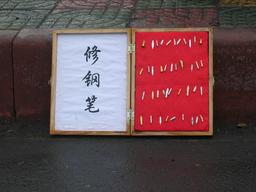 修钢笔